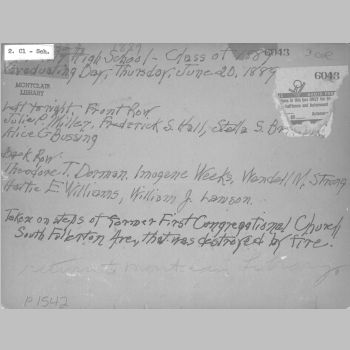 2. Cl - Sch.
1889
High School - Class of 1889
6043
Graduating Day, Thursday, June 20, 1889
6043
MONTCLAIR
LIBRARY
Left to right Front Row
Julie R. Miller, Frederick S. Hall, Stella S.
Alice G Bussing
Back Row
Theodore T. Dorman, Imogene Weeks, Wandell N. Strong
Hattie E. Williams, William J. Lawson.
Taken on steps of former First Congregational Church
South Fullerton Ave, that was destroyed by fire.
return to Montclair Library
P1542